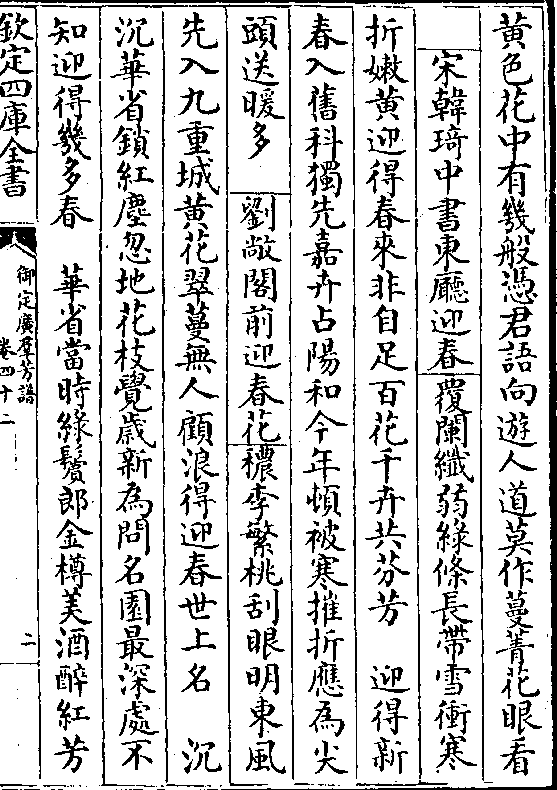 黃色花中有幾般憑君語向遊人道莫作蔓菁花眼看
宋韓琦中書東廳迎春覆闌纖弱綠條長帶雪衝寒
折嫩黃迎得春來非自足百花千卉共芬芳　迎得新
春入舊科獨先嘉卉占陽和今年頓被寒摧折應為尖
頭送暖多　劉敞閣前迎春花穠李繁桃刮眼明東風
先入九重城黃花翠蔓無人顧浪得迎春世上名　沉
沉華省鎖紅塵忽地花枝覺歲新為問名園最深處不
知迎得幾多春　華省當時綠鬢郎金樽美酒醉紅芳
欽定四庫全書
御定廣羣芳譜
卷四十二
二